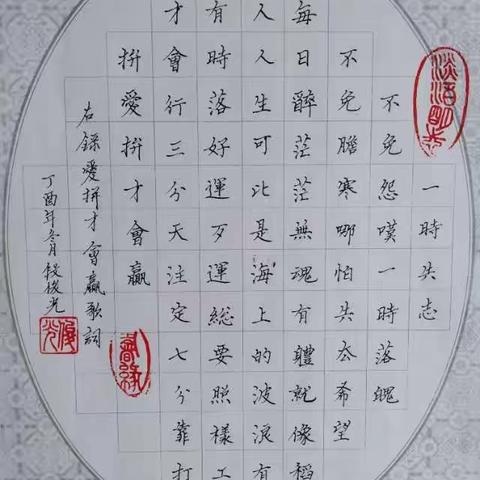 一時失志
不免怨嘆一時落魄
不免膽寒哪怕失去希望
每日醉茫茫無魂有體就像稻
人人生可比是海上的波浪有
有時落好運歹運總要照樣工
才會行三分天注定七分靠打
拚愛拚才會贏
右錄愛拼才會贏歌詞
丁酉年冬月段俊光
淡泊明志
俊光